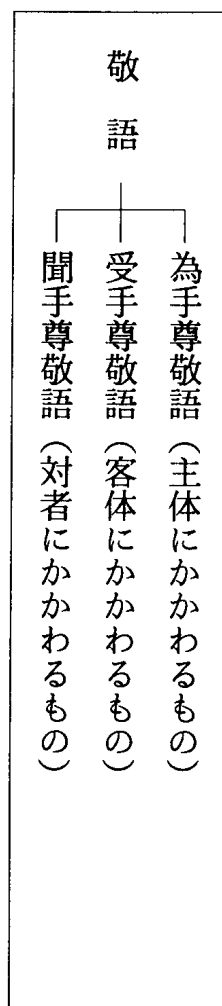 敬語
為手尊敬語（主体にかかわるもの）
受手尊敬語（客体にかかわるもの）
聞手尊敬語（対者にかかわるもの）